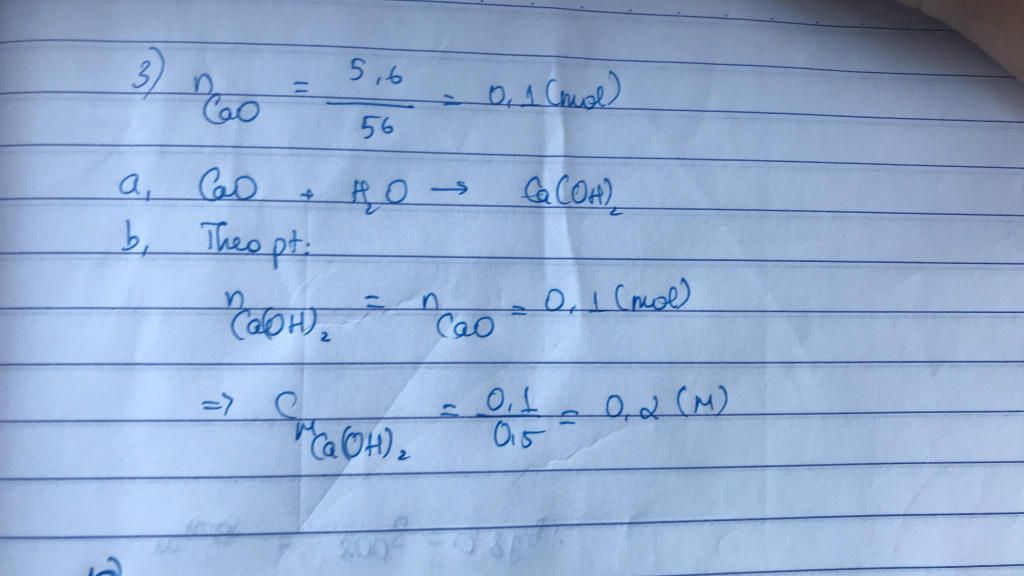 3) n CaO = 5,6 / 56 = 0,1 (mol)
a, CaO + H₂O → Ca(OH)₂
b, Theo pt:
n Ca(OH)₂ = n CaO = 0,1 (mol)
=> C M Ca(OH)₂ = 0,1 / 0,5 = 0,2 (M)